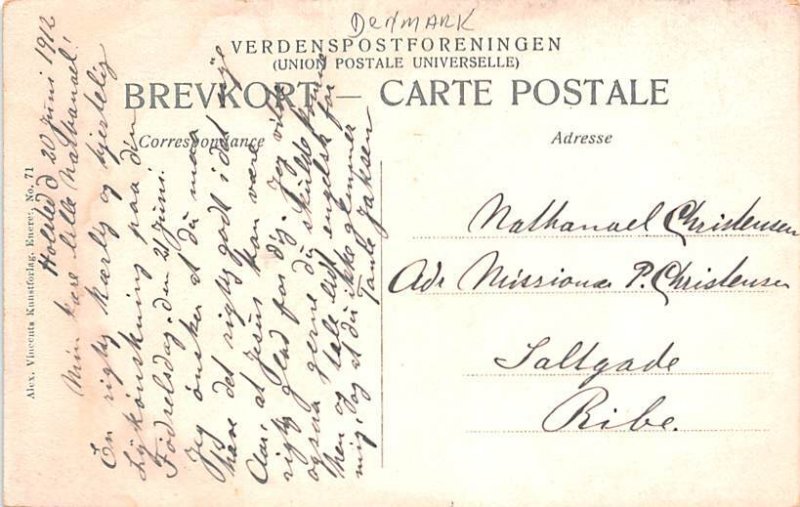 DENMARK
VERDENSPOSTFORENINGEN
(UNION POSTALE UNIVERSELLE)
BREVKORT — CARTE POSTALE
Correspondance
Adresse
Holsted d 20 Juni 1912
Min kære lille Nathanael!
En rigtig kærlig og hjertelig
Lykønskning paa din
Fødselsdag, den 21 Juni.
Jeg ønsker at du maa
have det rigtig godt i det nye
Aar, at Jesus kan være
rigtig glad for dig. Jeg vilde
ogsaa gerne du skulde komme
hen og tale lidt engelsk for
mig, og at du ikke glemmer
Tante
Nathanael Christensen
Adr Missionær P. Christensen
Saltgade
Ribe.
Alex. Vincents Kunstforlag, Eneret. No. 71